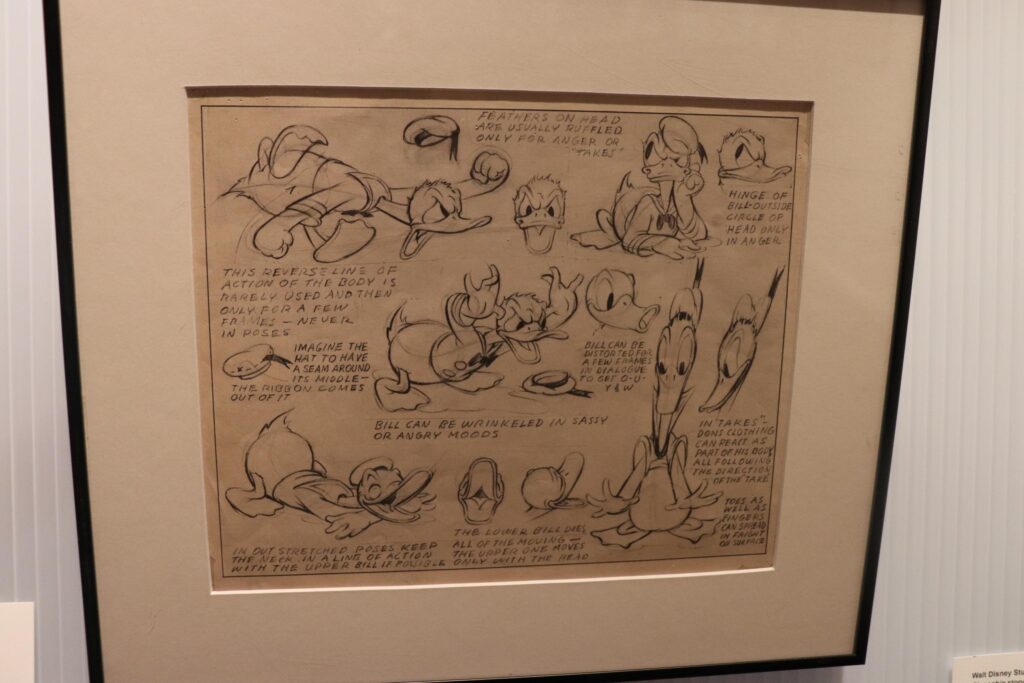 FEATHERS ON HEAD
ARE USUALLY RUFFLED
ONLY FOR ANGER OR
"TAKES"
HINGE OF
BILL-OUTSIDE
CIRCLE OF
HEAD ONLY
IN ANGER
THIS REVERSE LINE OF
ACTION OF THE BODY IS
RARELY USED AND THEN
ONLY FOR A FEW
FRAMES — NEVER
IN POSES
IMAGINE THE
HAT TO HAVE
A SEAM AROUND
ITS MIDDLE—
THE RIBBON COMES
OUT OF IT
BILL CAN BE
DISTORTED FOR
A FEW FRAMES
IN DIALOGUE
TO GET O-U-
Y & W
BILL CAN BE WRINKELED IN SASSY
OR ANGRY MOODS
IN "TAKES"-
DONS CLOTHING
CAN REACT AS
PART OF HIS BODY
ALL FOLLOWING
THE DIRECTION
OF THE TAKE
TOES AS
WELL AS
FINGERS
CAN SPREAD
IN FRIGHT
OR SURPRISE
IN OUT STRETCHED POSES KEEP
THE NECK IN A LINE OF ACTION
WITH THE UPPER BILL IF POSSIBLE
THE LOWER BILL DOES
ALL OF THE MOVING —
THE UPPER ONE MOVES
ONLY WITH THE HEAD
Walt Disney